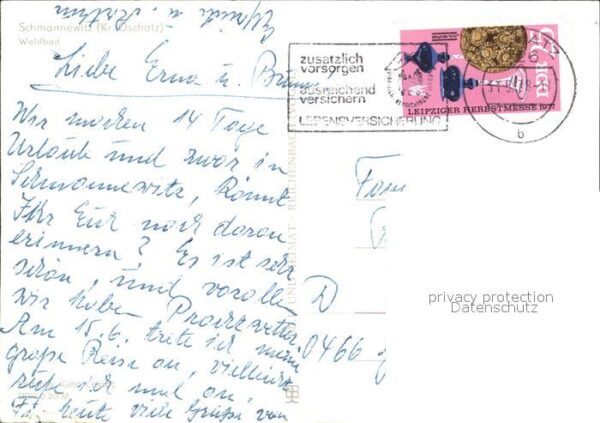 Schmannewitz (Kr. Oschatz)
Waldbad
Liebe Erna u. Bruno!
Wir machen 14 Tage
Urlaub und zwar in
Schmannewitz, Könnt
Ihr Euch noch daran
erinnern? Es ist sehr
schön, und vor allem
wir haben Prachtwetter.
Am 15.6. trete ich meine
große Reise an, vielleicht
rufe ich mal an.
Für heute viele Grüße von
u.
zusätzlich
vorsorgen
ausreichend
versichern
LEBENSVERSICHERUNG
LEIPZIGER HERBSTMESSE 1977
DDR
b
BILD UND HEIMAT REICHENBACH
Fam
D
0466
privacy protection
Datenschutz